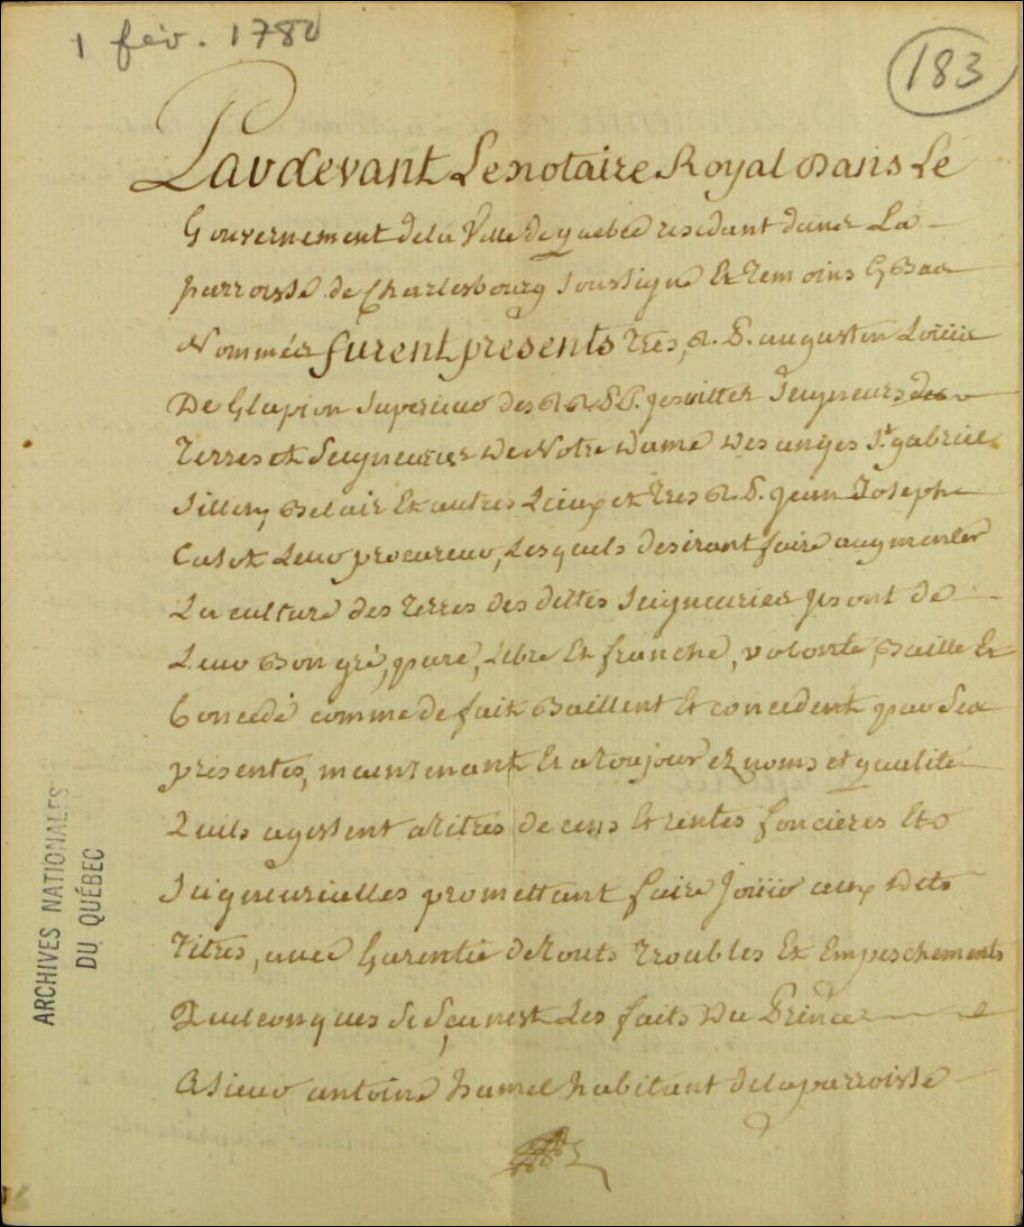 1 fév. 1780
183
Pardevant Le notaire Royal Dans Le
Gouvernement dela Ville de quebec residant dans La
parroisse de Charlesbourg Soussigné Et Temoins Cy Bas
Nommés furent presents Tres, R. P. augustin Loüis
De Glapion Superieur des RR. PP. jesuittes Seigneurs des
Terres et Seigneuries De Notre Dame Des anges St. gabriel
Sillery Belair Et autres Lieux et Tres R. P. jean Joseph
Casot Leur procureur, Lesquels desirant faire augmenter
La culture des Terres des dittes Seigneuries jls ont de
Leur Bon gré, pure, Libre Et franche, volonté, Baillé Et
Concedé comme de fait Baillent Et concedent par Les
presentes, maintenant Et a Toujour es noms et qualité
Quils agissent a Titres de cens Et rentes foncieres Et
Seigneurialles promettant faire Joüir aux Dits
Titres, avec Garentie de Touts Troubles Et Empeschements
Quelconques Si Ce nest Les faits Du Prince
A Sieur antoine hamel habitant de la parroisse
ARCHIVES NATIONALES
DU QUÉBEC